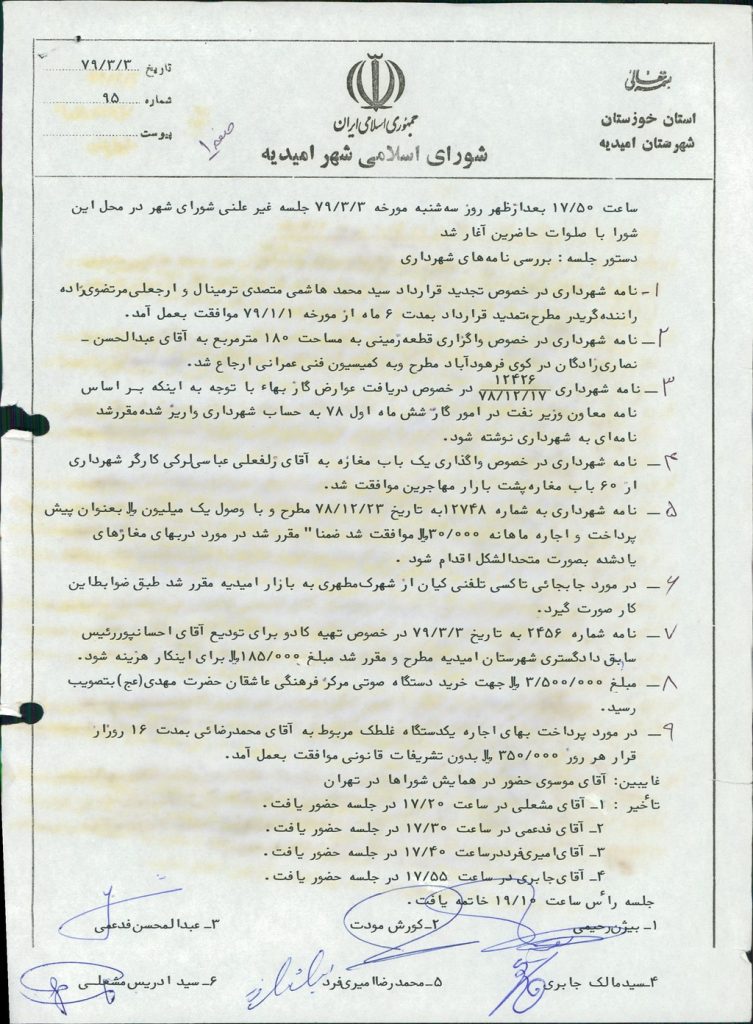 بسمه تعالی
استان خوزستان
شهرستان امیدیه
جمهوری اسلامی ایران
شورای اسلامی شهر امیدیه
تاریخ ۷۹/۳/۳
شماره ۹۵
پیوست
صفحه ۱
ساعت ۱۷/۵۰ بعدازظهر روز سه‌شنبه مورخه ۷۹/۳/۳ جلسه غیر علنی شورای شهر در محل این
شورا با صلوات حاضرین آغاز شد
دستور جلسه : بررسی نامه‌های شهرداری
۱- نامه شهرداری در خصوص تجدید قرارداد سید محمد هاشمی متصدی ترمینال و ارجعلی مرتضوی‌زاده
راننده گریدر مطرح،تمدید قرارداد بمدت ۶ ماه از مورخه ۷۹/۱/۱ موافقت بعمل آمد.
۲- نامه شهرداری در خصوص واگزاری قطعه زمینی به مساحت ۱۸۰ مترمربع به آقای عبدالحسن -
نصاری‌زادگان در کوی فرهودآباد مطرح وبه کمیسیون فنی عمرانی ارجاع شد.
۳- نامه شهرداری ۱۲۴۲۶/۷۸/۱۲/۱۷ در خصوص دریافت عوارض گاز بهاء با توجه به اینکه بر اساس
نامه معاون وزیر نفت در امور گاز شش ماه اول ۷۸ به حساب شهرداری واریز شده مقررشد
نامه‌ای به شهرداری نوشته شود.
۴- نامه شهرداری در خصوص واگذاری یک باب مغازه به آقای زلفعلی عباسی‌لرکی کارگر شهرداری
از ۶۰ باب مغازه پشت بازار مهاجرین موافقت شد.
۵- نامه شهرداری به شماره ۱۲۷۴۸به تاریخ ۷۸/۱۲/۲۳ مطرح و با وصول یک میلیون ﷼ بعنوان پیش
پرداخت و اجاره ماهانه ۳۰/۰۰۰﷼ موافقت شد ضمنا" مقرر شد در مورد دربهای مغازهای
یادشده بصورت متحدالشکل اقدام شود .
۶- در مورد جابجائی تاکسی تلفنی کیان از شهرک‌مطهری به بازار امیدیه مقرر شد طبق ضوابط‌این
کار صورت گیرد.
۷- نامه شماره ۲۴۵۶ به تاریخ ۷۹/۳/۳ در خصوص تهیه کادو برای تودیع آقای احسانپوررئیس
سابق دادگستری شهرستان امیدیه مطرح و مقرر شد مبلغ ۱۸۵/۰۰۰﷼ برای اینکار هزینه شود.
۸- مبلغ ۳/۵۰۰/۰۰۰ ﷼ جهت خرید دستگاه صوتی مرکز فرهنگی عاشقان حضرت مهدی(عج)بتصویب
رسید.
۹- در مورد پرداخت بهای اجاره یکدستگاه غلطک مربوط به آقای محمدرضائی بمدت ۱۶ روزاز
قرار هر روز ۳۵۰/۰۰۰ ﷼ بدون تشریفات قانونی موافقت بعمل آمد.
غایبین: آقای موسوی حضور در همایش شوراها در تهران
تأخیر : ۱- آقای مشعلی در ساعت ۱۷/۲۰ در جلسه حضور یافت.
۲- آقای فدعمی در ساعت ۱۷/۳۰ در جلسه حضور یافت.
۳- آقای‌امیری‌فرددرساعت ۱۷/۴۰ در جلسه حضور یافت.
۴- آقای‌جابری در ساعت ۱۷/۵۵ در جلسه حضور یافت.
جلسه رأس ساعت ۱۹/۱۰ خاتمه یافت.
۱- بیژن‌رحیمی ۲-کورش مودت ۳- عبدالمحسن فدعمی
۴-سیدمالک جابری ۵- محمدرضا امیری‌فرد ۶- سید ادریس مشعلی